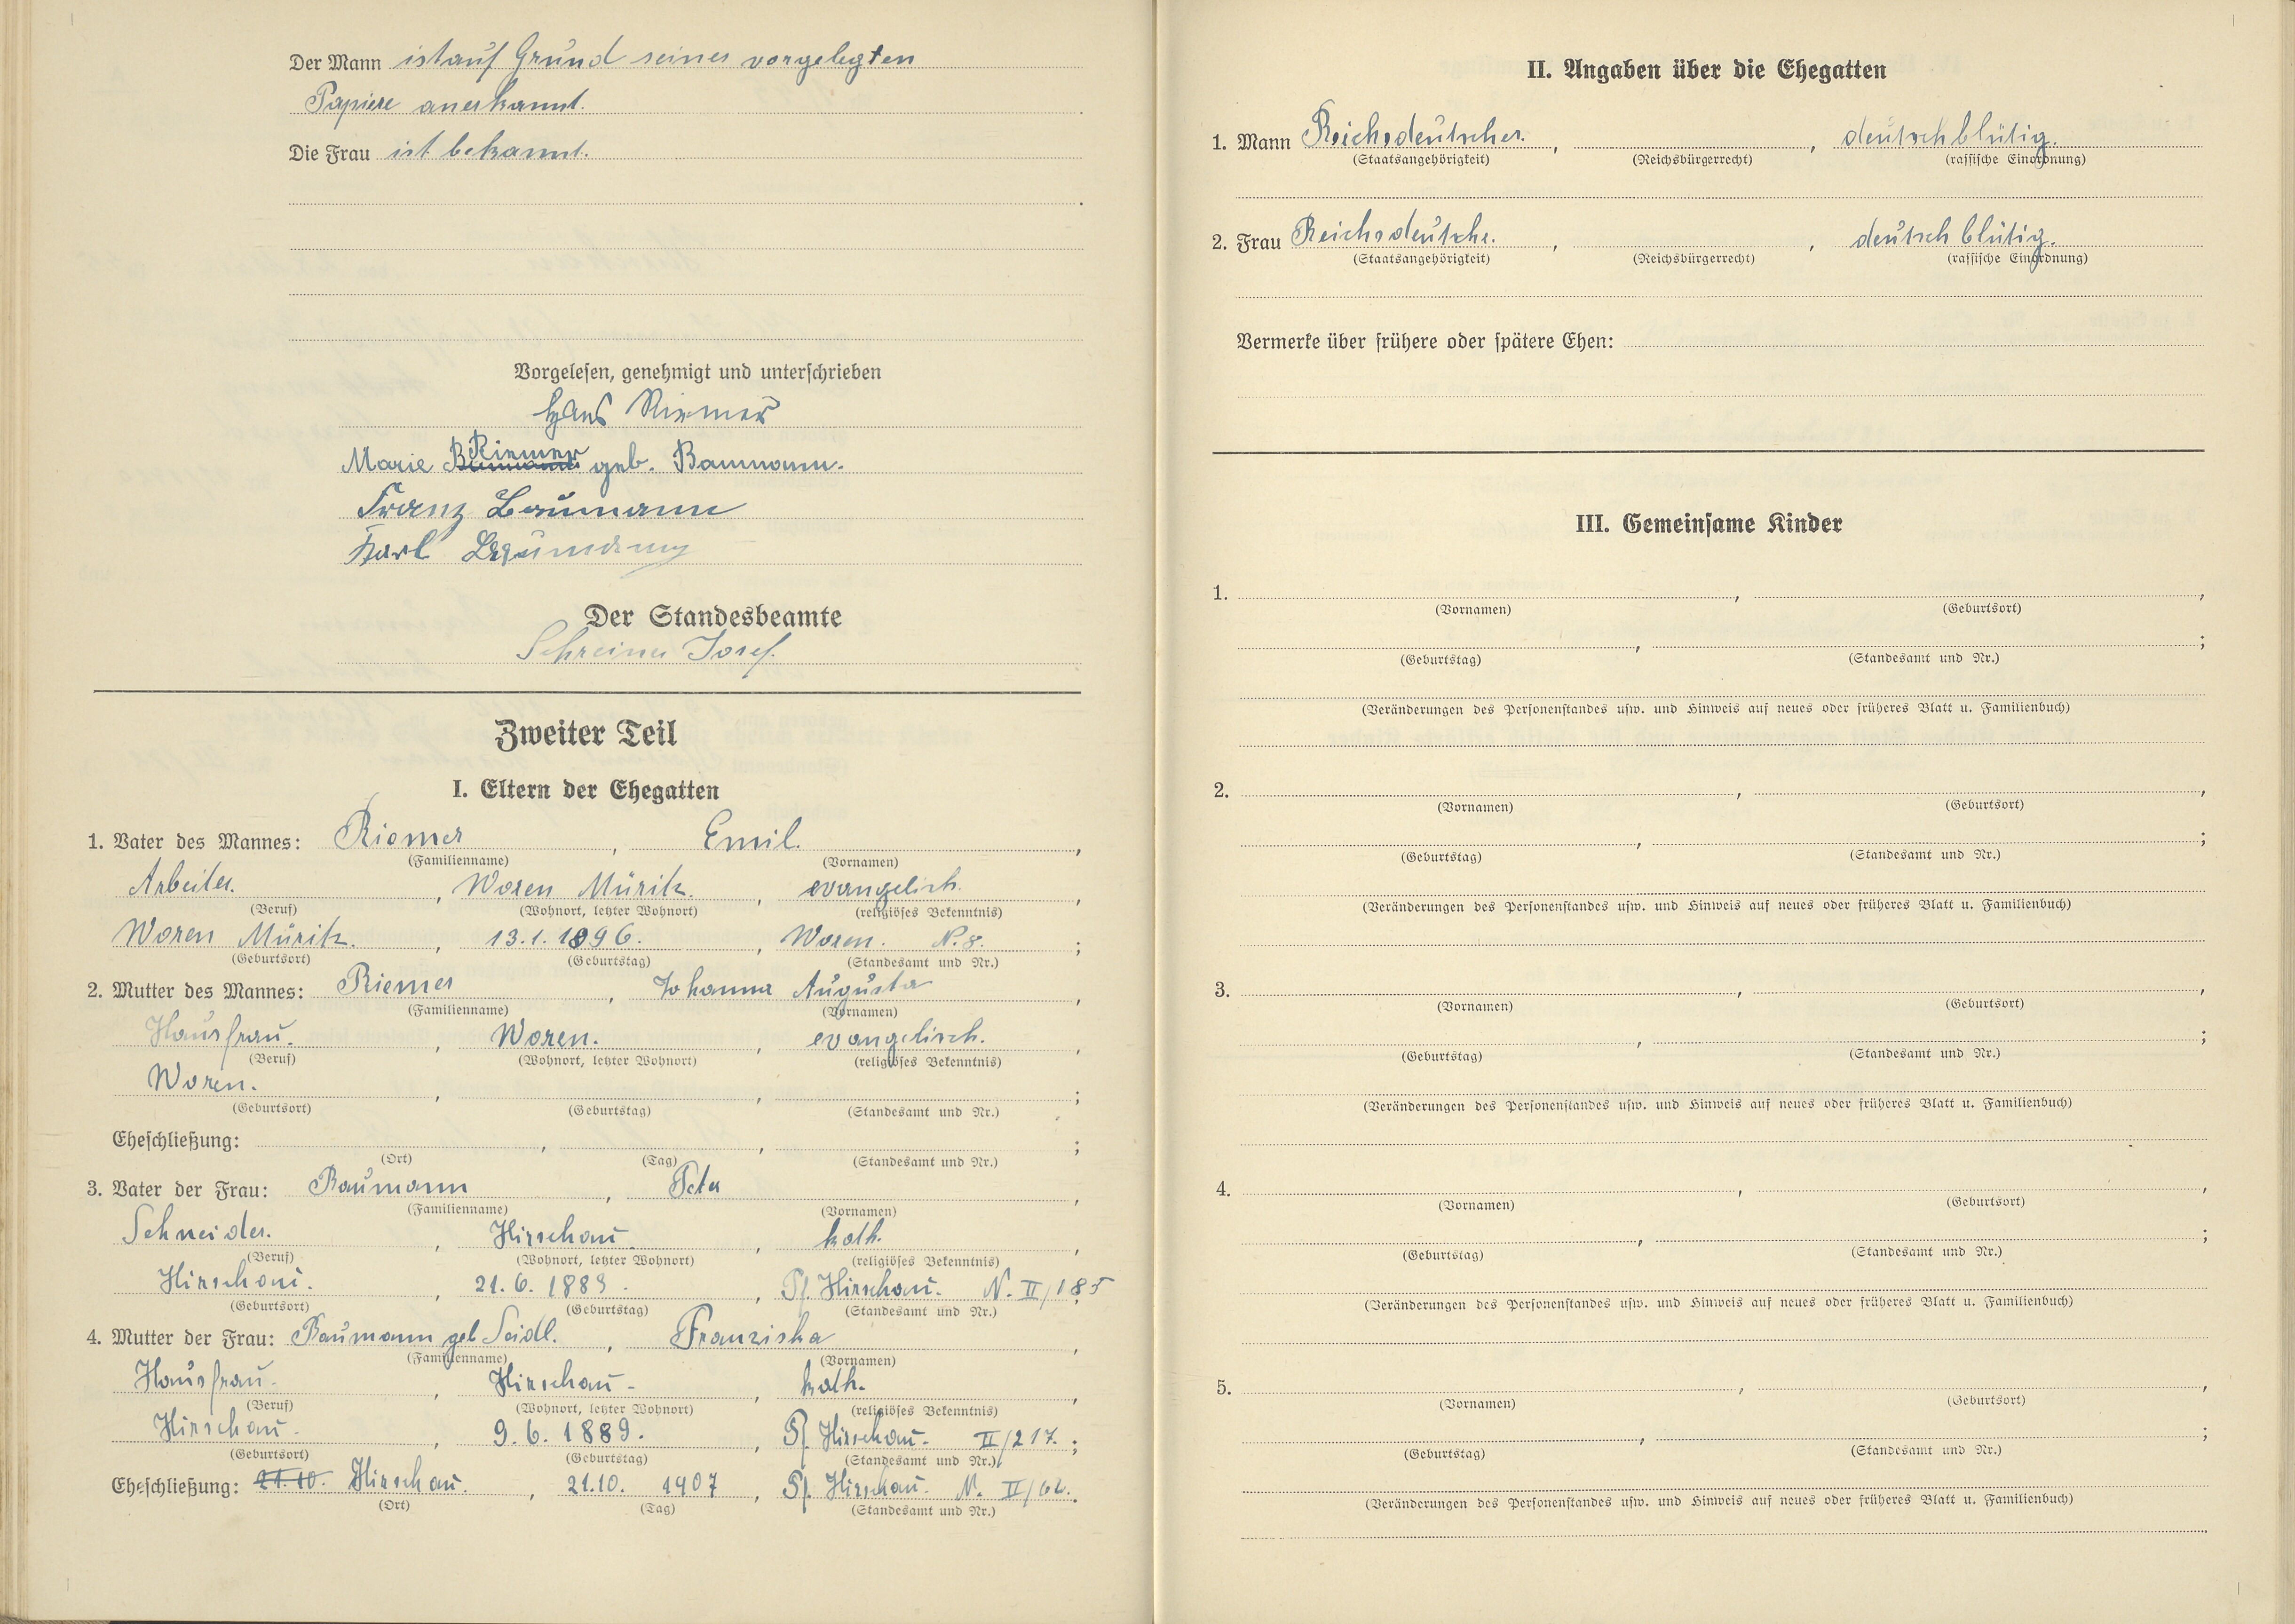 Der Mann ist auf Grund seiner vorgelegten
Papiere anerkannt.
Die Frau ist bekannt.
Vorgelesen, genehmigt und unterschrieben
Hans Riemer
Marie Riemer geb. Baumann.
Franz Baumann
Karl Baumann
Der Standesbeamte
Schreiner Josef.
Zweiter Teil
I. Eltern der Ehegatten
1. Vater des Mannes: Riemer, Emil.,
(Familienname) (Vornamen)
Arbeiter., Woren Müritz., evangelisch.,
(Beruf) (Wohnort, letzter Wohnort) (religiöses Bekenntnis)
Woren Müritz., 13.1.1896., Woren. N. 8.;
(Geburtsort) (Geburtstag) (Standesamt und Nr.)
2. Mutter des Mannes: Riemer, Johanna Augusta,
(Familienname) (Vornamen)
Hausfrau., Woren., evangelisch.,
(Beruf) (Wohnort, letzter Wohnort) (religiöses Bekenntnis)
Woren., , ;
(Geburtsort) (Geburtstag) (Standesamt und Nr.)
Eheschließung: , , ;
(Ort) (Tag) (Standesamt und Nr.)
3. Vater der Frau: Baumann, Peter,
(Familienname) (Vornamen)
Schneider., Hirschau., kath.,
(Beruf) (Wohnort, letzter Wohnort) (religiöses Bekenntnis)
Hirschau., 21.6.1883., Pf. Hirschau. N. II/185;
(Geburtsort) (Geburtstag) (Standesamt und Nr.)
4. Mutter der Frau: Baumann geb Seidl., Franziska,
(Familienname) (Vornamen)
Hausfrau., Hirschau., kath.,
(Beruf) (Wohnort, letzter Wohnort) (religiöses Bekenntnis)
Hirschau., 9.6.1889., Pf. Hirschau. II/217.;
(Geburtsort) (Geburtstag) (Standesamt und Nr.)
Eheschließung: 21.10. Hirschau., 21.10. 1907, Pf. Hirschau. N. II/62.
(Ort) (Tag) (Standesamt und Nr.)
II. Angaben über die Ehegatten
1. Mann Reichsdeutscher., , deutschblütig.
(Staatsangehörigkeit) (Reichsbürgerrecht) (rassische Einordnung)
2. Frau Reichsdeutsche., , deutschblütig.
(Staatsangehörigkeit) (Reichsbürgerrecht) (rassische Einordnung)
Vermerke über frühere oder spätere Ehen:
III. Gemeinsame Kinder
1. , ,
(Vornamen) (Geburtsort)
, ;
(Geburtstag) (Standesamt und Nr.)
(Veränderungen des Personenstandes usw. und Hinweis auf neues oder früheres Blatt u. Familienbuch)
2. , ,
(Vornamen) (Geburtsort)
, ;
(Geburtstag) (Standesamt und Nr.)
(Veränderungen des Personenstandes usw. und Hinweis auf neues oder früheres Blatt u. Familienbuch)
3. , ,
(Vornamen) (Geburtsort)
, ;
(Geburtstag) (Standesamt und Nr.)
(Veränderungen des Personenstandes usw. und Hinweis auf neues oder früheres Blatt u. Familienbuch)
4. , ,
(Vornamen) (Geburtsort)
, ;
(Geburtstag) (Standesamt und Nr.)
(Veränderungen des Personenstandes usw. und Hinweis auf neues oder früheres Blatt u. Familienbuch)
5. , ,
(Vornamen) (Geburtsort)
, ;
(Geburtstag) (Standesamt und Nr.)
(Veränderungen des Personenstandes usw. und Hinweis auf neues oder früheres Blatt u. Familienbuch)